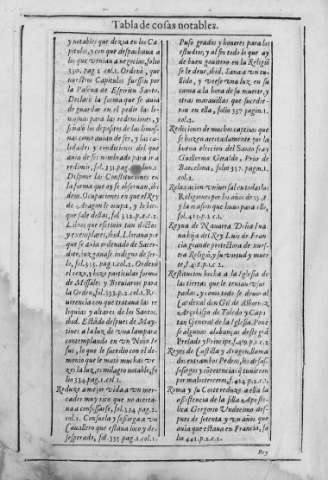 Tabla de cosas notables.
y notables que dezia en los Ca
pitulos, y con que despachaua a
los que venian a negocios, folio
330. pag. 2 col. 1. Ordenò, que
nuestros Capitulos fuessen por
la Pascua de Espiritu Santo.
Declarò la forma que se auia
de guardar en el pedir las li-
mosnas para las redenciones, y
señalò los depositos de las limos
nas como auian de ser, y las ca-
lidades y condiciones del que
auia de ser nombrado para ir a
redimir, fol. 331. pag. col. 1.
Dispuso las Constituciones en
la forma que ay se obseruan, ibi
dem. Ocupaciones en que el Rey
de Aragon le ocupa, y lo bien
que sale dellas, fol. 332. p. 2. c. 1.
Libros que escriuio tan doctos
y exemplares, ibid. Llorana por
que se auia ordenado de Sacer-
dote, juzgandose indigno de ser-
lo, fol. 333. pag. 1. col. 2. Ordenò
el rezo, y hizo particular forma
de Missales, y Breuiarios para
la Orden, fol. 333. p. 2. col. 1. Re-
uerencia con que trataua las re
liquias y altares de los Santos,
ibid. Estando despues de May-
tines a la luz de vna lampara
contemplando en vn Niño Ie-
sus, lo que le sucedio con el de-
monio que le matò muchas ve-
zes la luz, es milagro notable, fo
lio 334. pag. 1. col. 1.
Reduze a mejor vida a vn mer-
cader muy rico que no acerta-
ua a confessarse, fol. 334. pag. 2.
col. 1. Consuela y sossiega a vn
Cauallero que estaua loco y de-
sesperado, fol. 335. pag. 1. col. 1.
Puso grados y honores para los
estudios, y assi todo lo que ay
de buen gouierno en la Religiõ
se le deue, ibid. Sana a vn tu-
llido, y veese vna luz en su
cama a la hora de su muerte, y
otras marauillas que sucedie-
ron en ella, folio 337. pag. 1.
col. 2.
Redenciones de muchos captiuos que
se hazen acertadamente por la
buena eleccion del Santo fray
Guillermo Giralde, Prior de
Barcelona, folio 357. pag. 1.
col. 2.
Relaxacion vniuersal en todas las
Religiones por los años de
y la ocasion que huuo para ello,
fol. 413. p. 2. c. 1.
Reyna de Nauarra Doña Iuana
hija del Rey Luis de Fran
cia grande protectora de nues-
tra Religiõ, su virtud y muer
te, f. 418. p. 1. c. 2.
Restitucion hecha a la Iglesia de
las tierras que le tenian vsur
padas, y como todo se deuio al
Cardenal don Gil de Albornoz
Arçobispo de Toledo y Capi-
tan General de la Iglesia. Pone
se algunas alabanças desse gran
Prelado y Principe, f. 419. p. 2. c. 1.
Reyes de Castilla y Aragon llama
dos entrambos Pedros, los desas-
sossiegos y crueldades q̃ tuuieron
por malos terceros, f. 424. p. 2. c. 1.
Roma y su Corte reduze a ella la
assistencia de la silla Aposto-
lica Gregorio Vndecimo des-
pues de setenta y vn años que
auia que estaua en Francia, fo
lio 441. p. 2. c. 1.
Rey